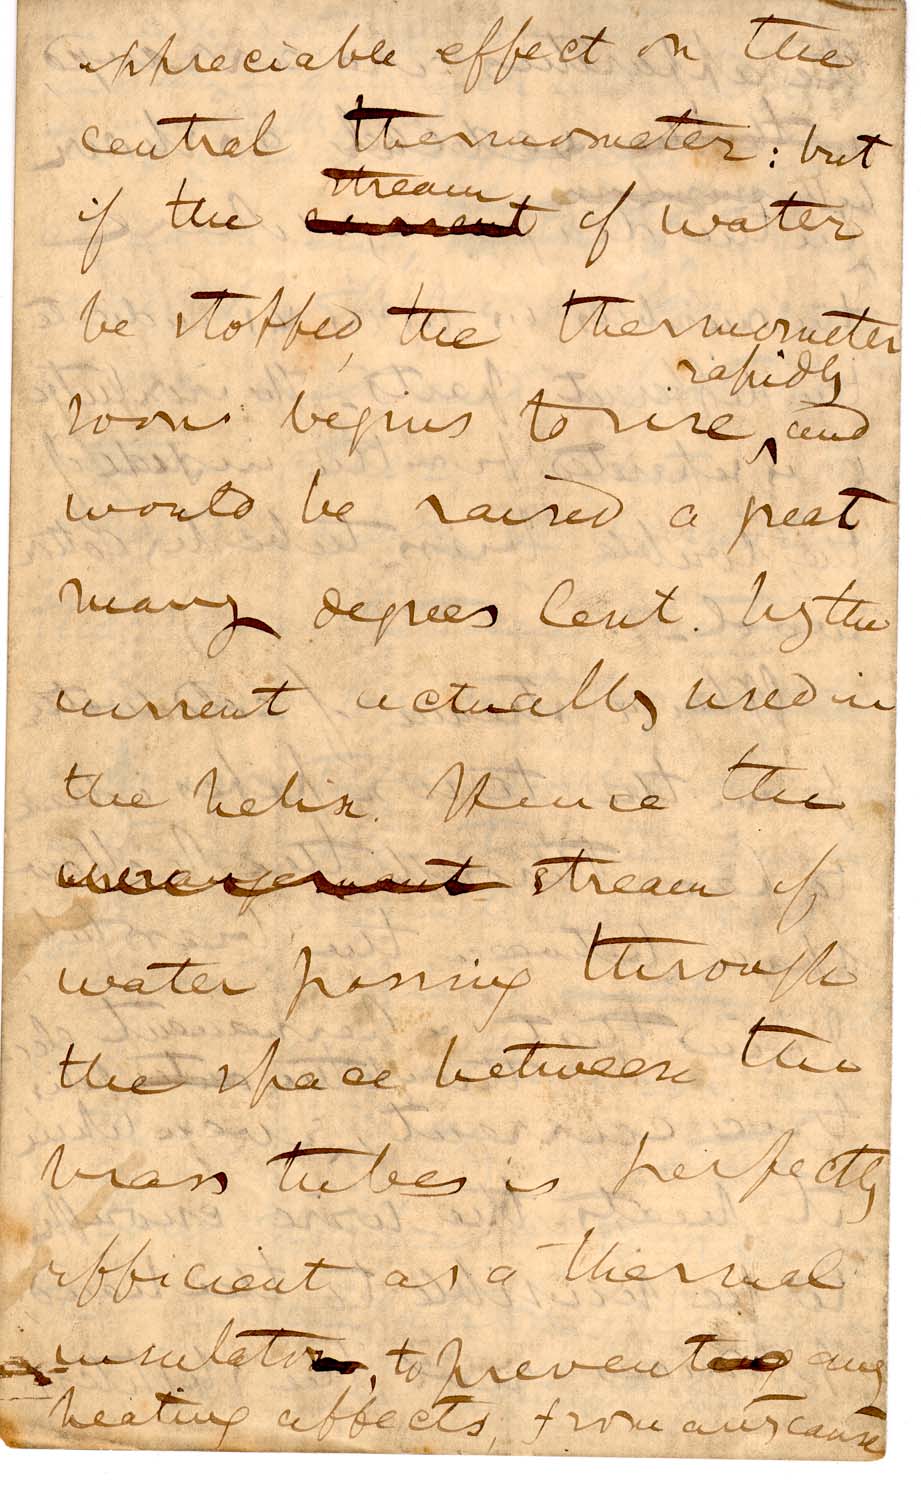 appreciable effect on the
central thermometer: but
stream
if the current of water
be stopped, the thermometer
rapidly
soon begins to rise, and
would be raised a great
many degrees Cent. by the
current actually used in
the helix. Hence the
arrangement stream of
water passing through
the space between the
brass tubes is perfectly
efficient as a thermal
insulator, to prevent any
heating effects, from any cause